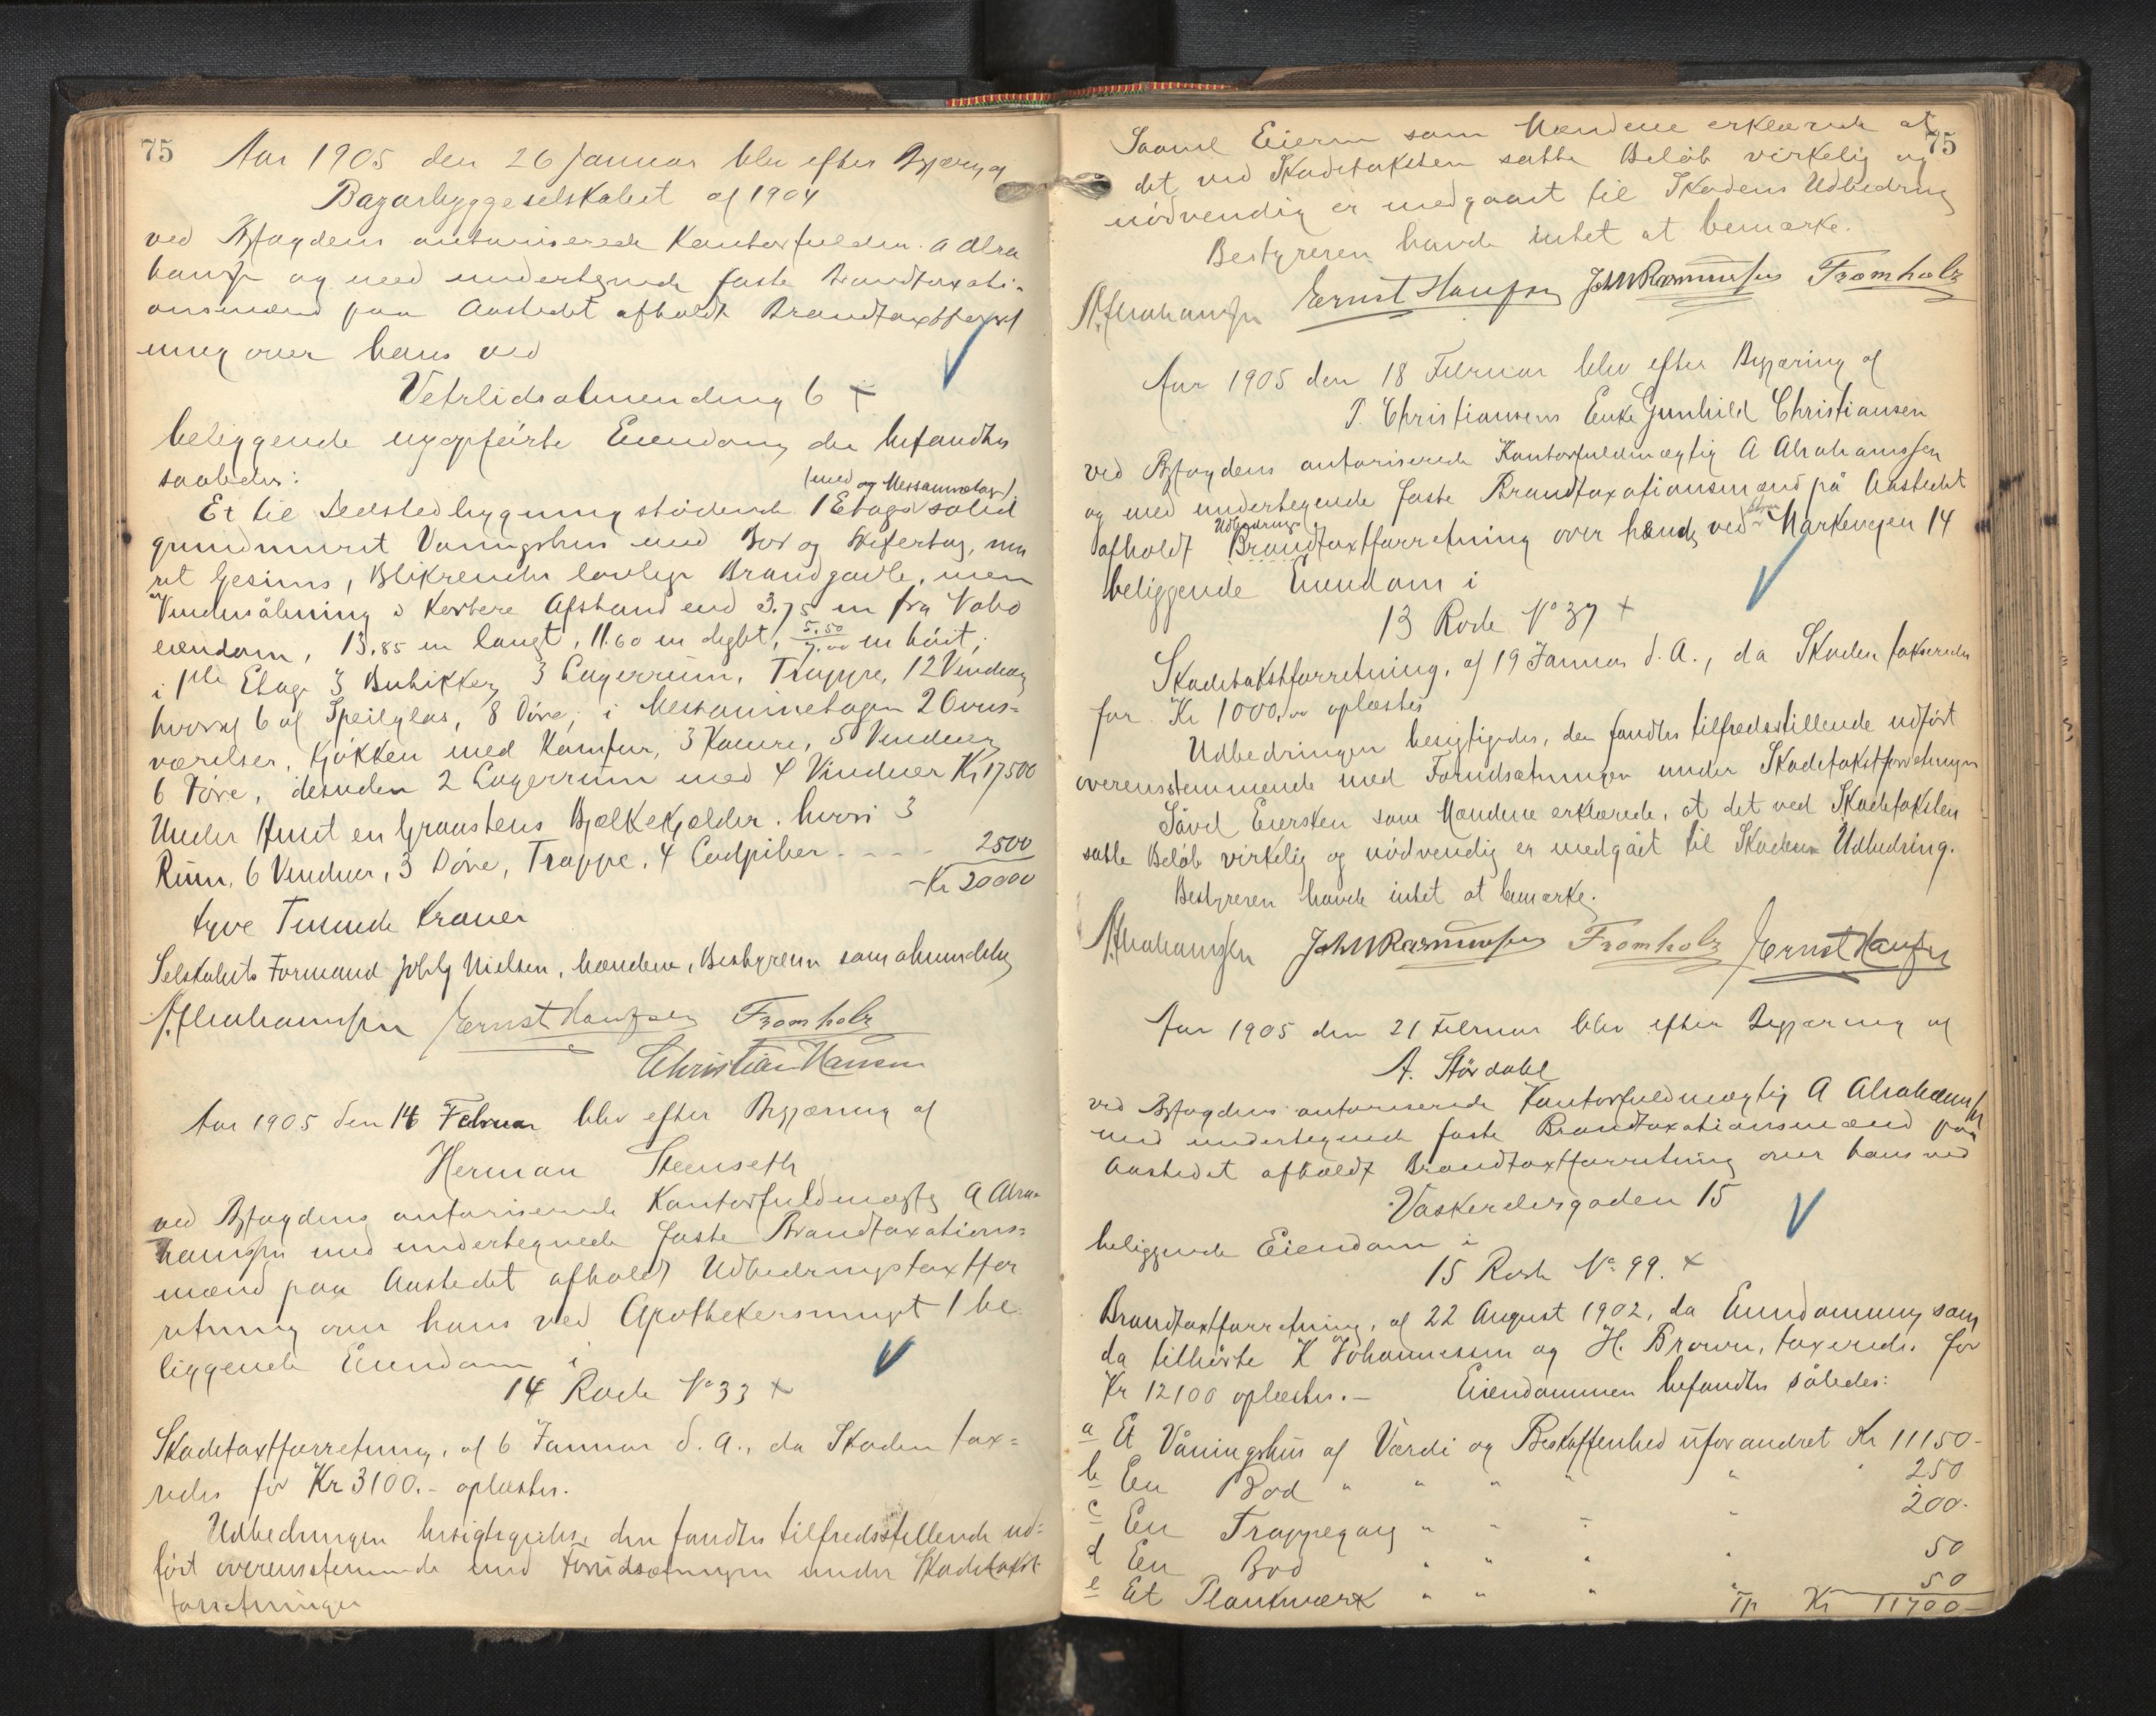 75
Aar 1905 den 26 Januar blev efter Begjæring af
Bazarbyggeselskabet af 1904
ved Byfogdens autoriserede Kontorfuldm. A Abra
hamsen og med undertegnede faste Brandtaxati-
onsmænd paa Aastedet afholdt Brandtaxtforret
ning over hans ved
Vetrlidsalmending 6 +
beliggende nyopførte Eiendom, der befandtes
saaledes:
(med og Messaninetage)
Et til Ildsted bygning stødende 1 Etages solid
grundmuret Vaaningshus med Bor og Skifertag, mu
ret Gesims, Blikrender lovlige Brandgavle, men
Vinduesåbning i kortere Afstand end 3.75 m fra Nabo
eiendom, 13.85 m langt, 11.60 m dybt, 5.50/7.00 m høit;
i 1ste Etage 3 Butikker, 3 Lagerrum, Trappe, 12 Vinduer,
hvoraf 6 af Speilglas, 8 Døre; i Messaninetagen 2 Overs-
værelser, Kjøkken med Komfur, 3 Kamre, 5 Vinduer,
6 Døre, desuden 2 Lagerrum med 4 Vinduer Kr 17,500
Under Huset en Graastens Bjælkekjælder, hvori 3
Rum, 6 Vinduer, 3 Døre, Trappe, 4 Ladpiber - - - - 2500
Kr 20000
tyve Tusinde Kroner
Selskabets Formand Nielsen, Mændene, Bestyreren som almindelig
A. Abrahamsen Ernst Hansen Fromholz
Christian Hansen
Aar 1905 den 14 Februar blev efter Begjæring af
Herman Steenseth
ved Byfogdens autoriserede Kontorfuldmægtig A Abra-
hamsen med undertegnede faste Brandtaxations-
mænd paa Aastedet afholdt Udbedringstaxtfor
retning over hans ved Apothekersmuget 1 be
liggende Eiendom i
14 Rode No 33 +
Skadetaxtforretning, af 6 Januar d. A., da Skaden tax-
redes for Kr 3100.- oplæstes.
Udbedringen besigtigedes, den fandtes tilfredsstillende ud-
ført overensstemmende med Forudsætningen under Skadetakst-
forretningen
75
Saavel Eieren som Mændene erklærede at
det ved Skadetaksten satte Beløb virkelig og
nødvendig er medgaaet til Skadens Udbedring
Bestyreren havde intet at bemærke.
A. Abrahamsen Ernst Hansen Joh M Rasmussen Fromholz
Aar 1905 den 18 Februar blev efter Begjæring af
P. Christiansens Enke Gunhild Christiansen
ved Byfogdens autoriserede Kontorfuldmægtig A Abrahamsen
og med undertegnede faste Brandtaxationsmænd på Aastedet
Udbedrings
afholdt Brandtaxtforretning over hendes ved Markeveien 14
beliggende Eiendom i
13 Rode No 37 +
Skadetakstforretning, af 19 Januar d. A., da Skaden taksertes
for Kr 1000,00 oplæstes
Udbedringen besigtigedes, den fandtes tilfredsstillende udført
overensstemmende med Forudsætningen under Skadetakstforretningen
Såvel Eiersken som Mændene erklærede, at det ved Skadetaksten
satte Beløb virkelig og nødvendig er medgået til Skadens Udbedring.
Bestyreren havde intet at bemærke.
A. Abrahamsen Joh M Rasmussen Fromholz Ernst Hansen
Aar 1905 den 21 Februar blev efter Begjæring af
A. Størdahl
ved Byfogdens autoriserede Kontorfuldmægtig A Abrahamsen
med undertegnede faste Brandtaxationsmænd paa
Aastedet afholdt Brandtaxtforretning over hans ved
Vaskerelvsgaden 15
beliggende Eiendom i
15 Rode No 99. +
Brandtaxtforretning, af 22 August 1902, da Eiendommen, som
da tilhørte K Johannessen og H. Brown, taxeredes for
Kr 12100 oplæstes. - Eiendommen befandtes således:
a Et Våningshus af Værdi og Beskaffenhed uforandret Kr 11150-
b En Bod " " " " " 250
c En Trappegang " " " " 200-
d En Bod " " " " 50
e Et Plankeværk " " " " 50
Tp Kr 11700-